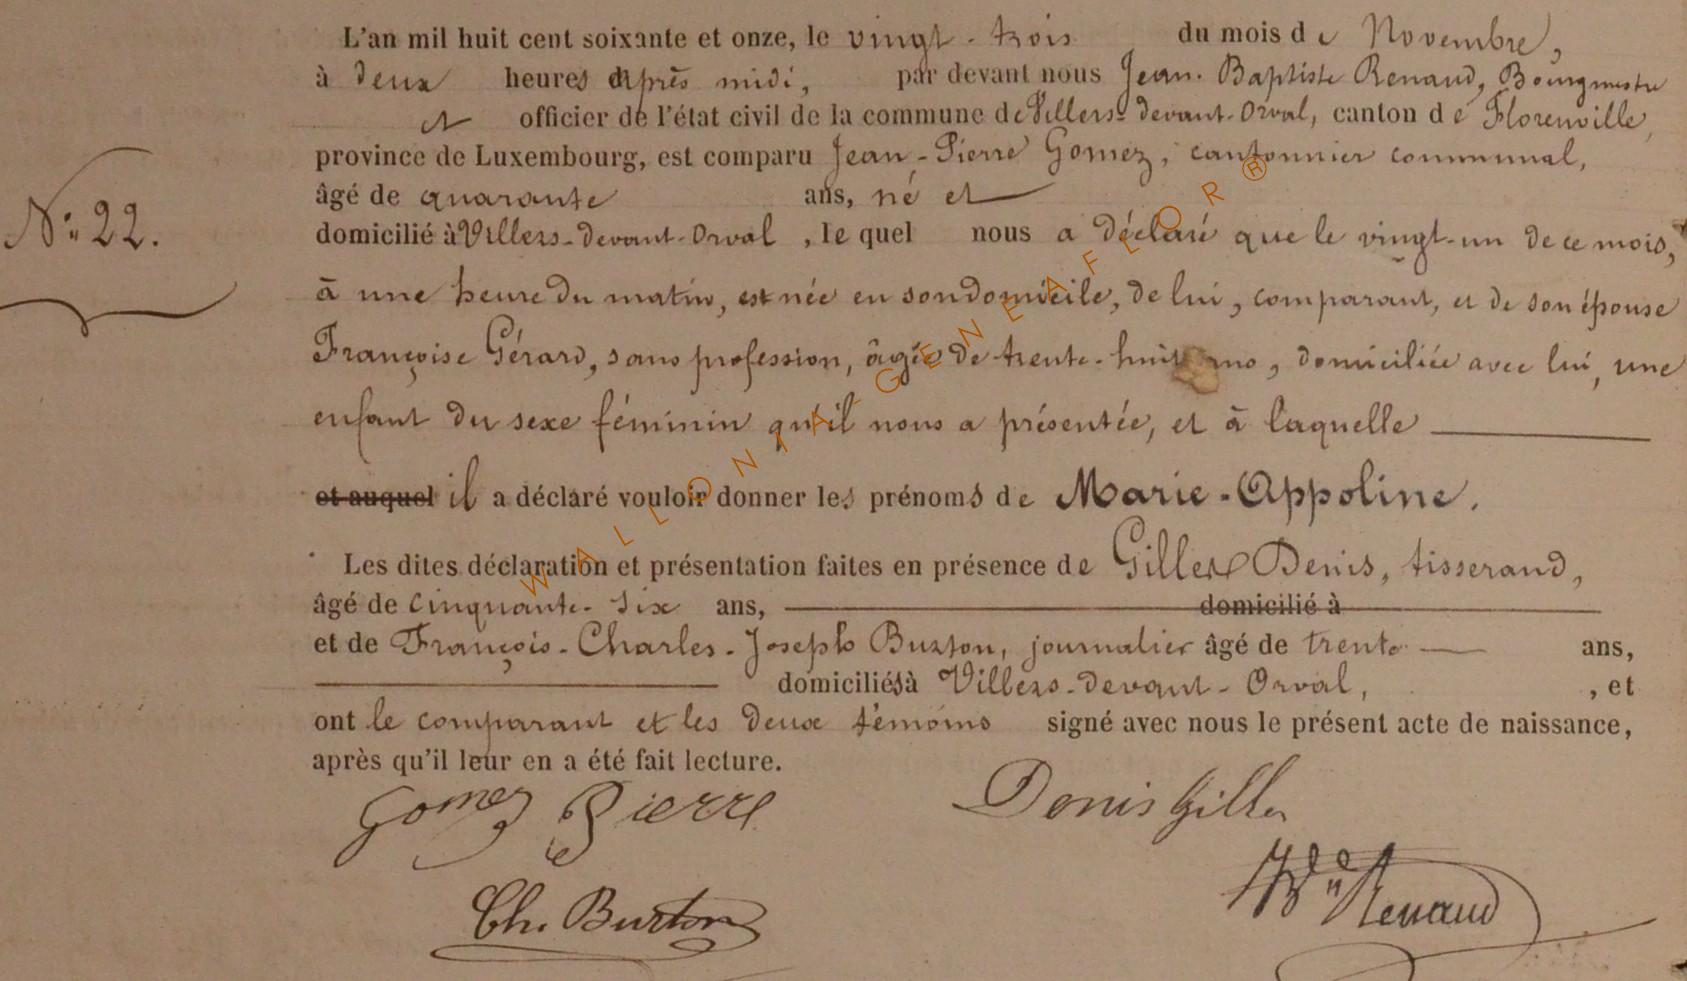 L'an mil huit cent soixante et onze, le vingt-trois du mois de Novembre,
à deux heures après midi, par devant nous Jean-Baptiste Renaud, Bourgmestre
et officier de l'état civil de la commune de Villers-devant-Orval, canton de Florenville,
province de Luxembourg, est comparu Jean-Pierre Gomez, cantonnier communal,
âgé de quarante ans, né et
N° 22.
domicilié à Villers-devant-Orval, lequel nous a déclaré que le vingt-un de ce mois,
à une heure du matin, est née en son domicile, de lui, comparant, et de son épouse
Françoise Gérard, sans profession, âgée de trente-huit ans, domiciliée avec lui, une
enfant du sexe féminin qu'il nous a présentée, et à laquelle
et auquel il a déclaré vouloir donner les prénoms de Marie-Appoline.
Les dites déclaration et présentation faites en présence de Gilles Denis, tisserand,
âgé de cinquante-six ans, domicilié à
et de François-Charles-Joseph Burton, journalier âgé de trente ans,
domiciliés à Villers-devant-Orval, , et
ont le comparant et les deux témoins signé avec nous le présent acte de naissance,
après qu'il leur en a été fait lecture.
Gomez Pierre Denis Gilles
Ch. Burton Renaud
WALLONIA-GENEAFLOR®